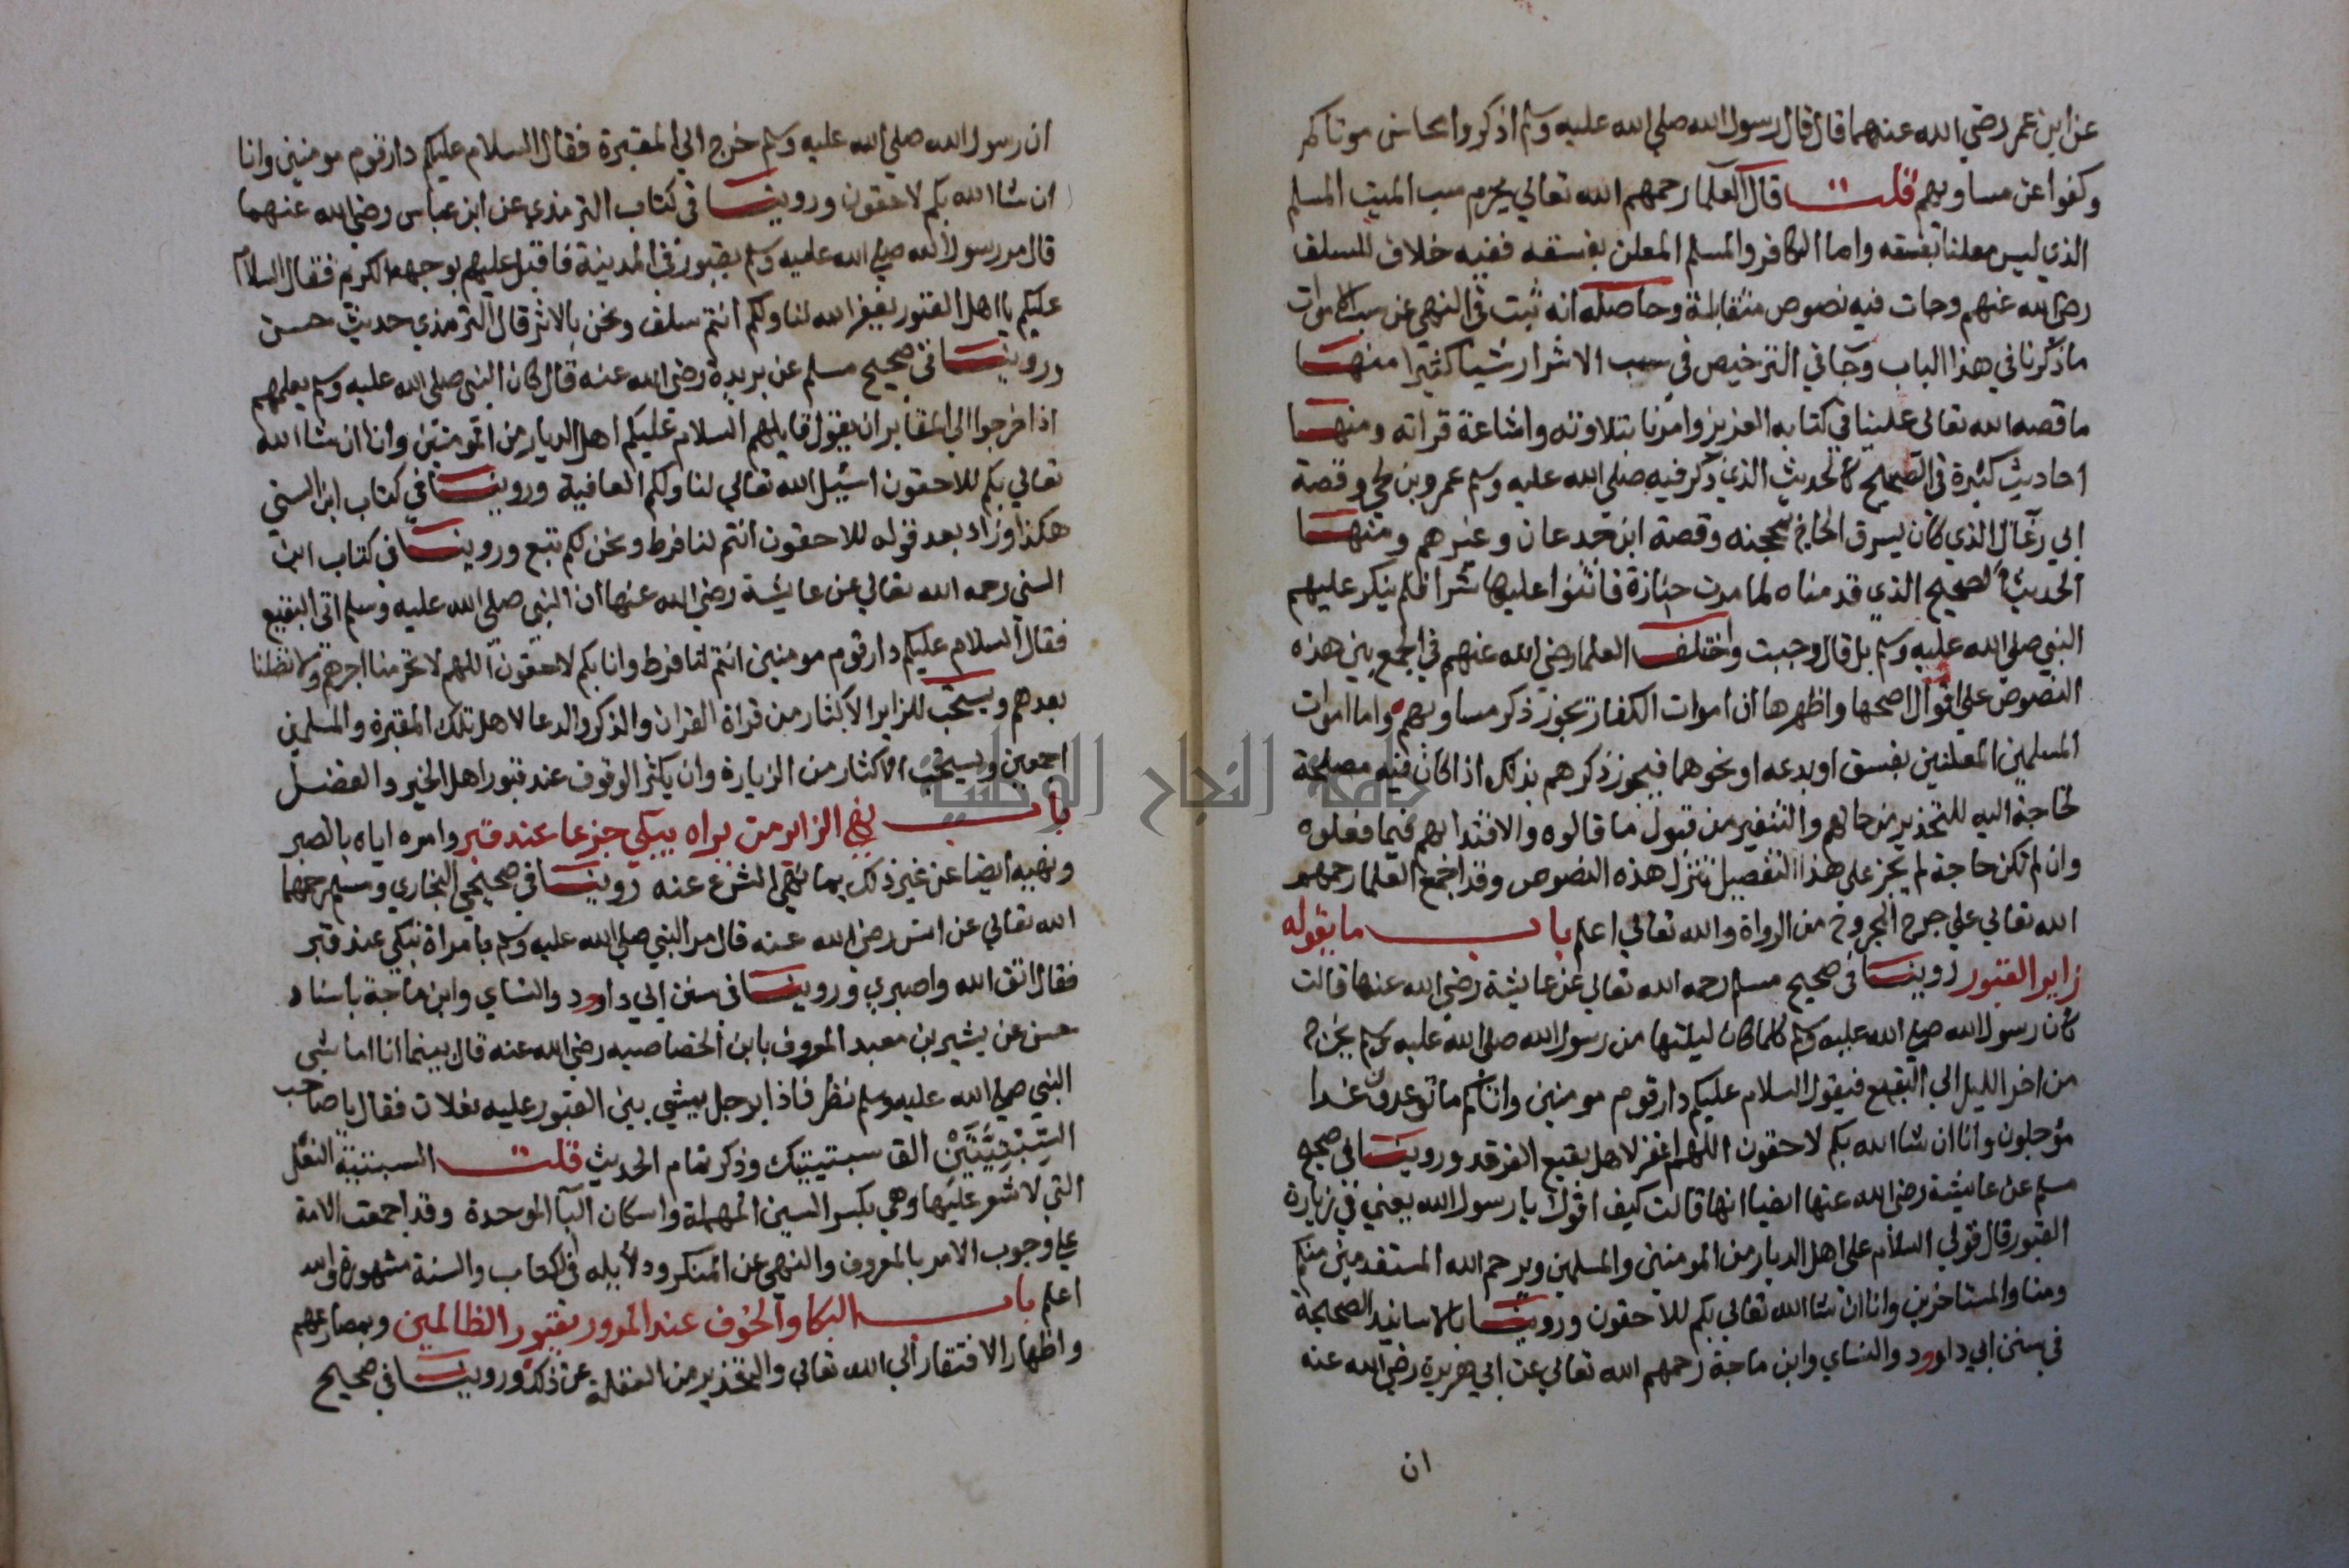 عن ابن عمر رضي الله عنهما قال قال رسول الله صلي الله عليه وسلم اذكروا محاسن موتاكم
وكفوا عن مساويهم قلت قال العلما رحمهم الله تعالي يحرم سب الميت المسلم
الذي ليس معلنا بفسقه واما الكافر والمسلم المعلن بفسقه ففيه خلاف للسلف
رضي الله عنهم وجات فيه نصوص متقابلة وحاصله انه ثبت في النهي عن سب الاموات
ما ذكرنا في هذا الباب وجا في الترخيص في سب الاشرار شيا كثيرا منها
ما قصه الله تعالي علينا في كتابه العزيز وامرنا بتلاوته واشاعة قراته ومنها
احاديث كثيرة في الصحيح كالحديث الذي ذكر فيه صلي الله عليه وسلم عمرو بن لحي وقصة
ابي رغال الذي كان يسرق الحاج بمحجنه وقصة ابن جدعان وغيرهم ومنها
الحديث الصحيح الذي قدمناه لما مرت جنازة فاثنوا عليها شرا فلم ينكر عليهم
النبي صلي الله عليه وسلم بل قال وجبت واختلف العلما رضي الله عنهم في الجمع بين هذه
النصوص علي اقوال اصحها واظهرها ان اموات الكفار يجوز ذكر مساويهم واما اموات
المسلمين المعلنين بفسق او بدعه او نحوهما فيجوز ذكرهم بذلك اذا كان فيه مصلحة
لحاجة اليه للتحذير من حالهم والتنفير من قبول ما قالوه والاقتدا بهم فيما فعلوه
وان لم تكن حاجة لم يجز علي هذا التفصيل تنزل هذه النصوص وقد اجمع العلما رحمهم
الله تعالي علي جرح المجروح من الرواة والله تعالي اعلم باب ما يقوله
زاير القبور روينا في صحيح مسلم رحمه الله تعالي عن عايشة رضي الله عنها قالت
كان رسول الله صلي الله عليه وسلم كلما كان ليلتها من رسول الله صلي الله عليه وسلم يخرج
من اخر الليل الي البقيع فيقول السلام عليكم دار قوم مومنين واتاكم ما توعدون غدا
مؤجلون وانا ان شا الله بكم لاحقون اللهم اغفر لاهل بقيع الغرقد وروينا في صحيح
مسلم عن عايشة رضي الله عنها ايضا انها قالت كيف اقول يا رسول الله يعني في زيارة
القبور قال قولي السلام علي اهل الديار من المومنين والمسلمين ويرحم الله المستقدمين منكم
ومنا والمستاخرين وانا ان شا الله تعالي بكم للاحقون وروينا بالاسانيد الصحيحة
في سنن ابي داوود والنساي وابن ماجة رحمهم الله تعالي عن ابي هريرة رضي الله عنه
ان
ان رسول الله صلي الله عليه وسلم خرج الي المقبرة فقال السلام عليكم دار قوم مومنين وانا
ان شا الله بكم لاحقون وروينا في كتاب الترمذي عن ابن عباس رضي الله عنهما
قال مر رسول الله صلي الله عليه وسلم بقبور في المدينة فاقبل عليهم بوجهه الكريم فقال السلام
عليكم يا اهل القبور يغفر الله لنا ولكم انتم سلف ونحن بالاثر قال الترمذي حديث حسن
وروينا في صحيح مسلم عن بريدة رضي الله عنه قال كان النبي صلي الله عليه وسلم يعلمهم
اذا خرجوا الي المقابر ان يقول قايلهم السلام عليكم اهل الديار من المومنين وانا ان شا الله
تعالي بكم للاحقون اسئل الله تعالي لنا ولكم العافية وروينا في كتاب ابن السني
هكذا وزاد بعد قوله للاحقون انتم لنا فرط ونحن لكم تبع وروينا في كتاب ابن
السني رحمه الله تعالي عن عايشة رضي الله عنها ان النبي صلي الله عليه وسلم اتي البقيع
فقال السلام عليكم دار قوم مومنين انتم لنا فرط وانا بكم لاحقون اللهم لا تحرمنا اجرهم ولا تضلنا
بعدهم ويستحب للزاير الاكثار من قراة القران والذكر والدعا لاهل تلك المقبرة والمسلمين
اجمعين ويستحب الاكثار من الزيارة وان يكثر الوقوف عند قبور اهل الخير والفضل
باب نهي الزاير من يراه يبكي جزعا عند قبر وامره اياه بالصبر
ونهيه ايضا عن غير ذلك مما نهي الشرع عنه روينا في صحيحي البخاري ومسلم رحمهما
الله تعالي عن انس رضي الله عنه قال مر النبي صلي الله عليه وسلم بامراة تبكي عند قبر
فقال اتق الله واصبري وروينا في سنن ابي داوود والنساي وابن ماجة باسناد
حسن عن بشير بن معبد المعروف بابن الخصاصيه رضي الله عنه قال بينما انا اماشي
النبي صلي الله عليه وسلم نظر فاذا برجل يمشي بين القبور عليه نعلان فقال يا صاحب
السِّبْتِيَّتَيْنِ القِ سبتيتيك وذكر تمام الحديث قلت السبتية النعل
التي لا شعر عليها وهي بكسر السين المهملة واسكان البآ الموحدة وقد اجمعت الامة
علي وجوب الامر بالمعروف والنهي عن المنكر ودلايله في الكتاب والسنة مشهورة والله
اعلم باب البكا والخوف عند المرور بقبور الظالمين وبمصارعهم
واظهار الافتقار الي الله تعالي والتحذير من الغفلة عن ذلك وروينا في صحيح
جامعة النجاح الوطنية